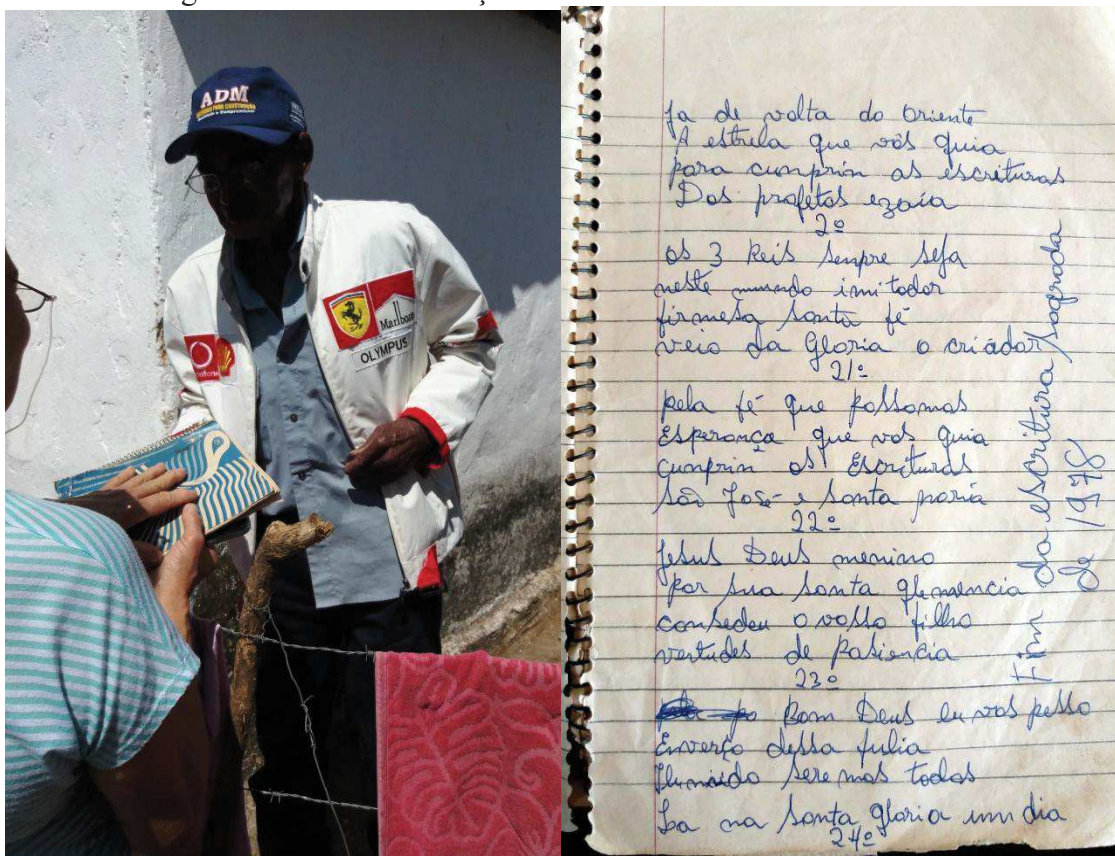 ADM
MATERIAIS PARA CONSTRUÇÃO
Marlboro
OLYMPUS
vodafone
Ja de volta do Oriente
A estrela que vós guia
para cumprin as escrituras
Dos profetas ezaía
2º
os 3 Reis senpre seja
neste mundo imitador
firmesa santa fé
veio da Gloria o criador
21º
pela fé que possamos
Esperança que vos guia
cunprin as Escrituras
são José e santa maria
22º
Jesus Deus menino
por sua santa glemencia
consedeu o vosso filho
vertudes de pasiencia
23º
Bom Deus eu vos pesso
Enverço dessa fulia
seremos todos
La na santa gloria um dia
24º
Fim da escritura sagrada
de 1978